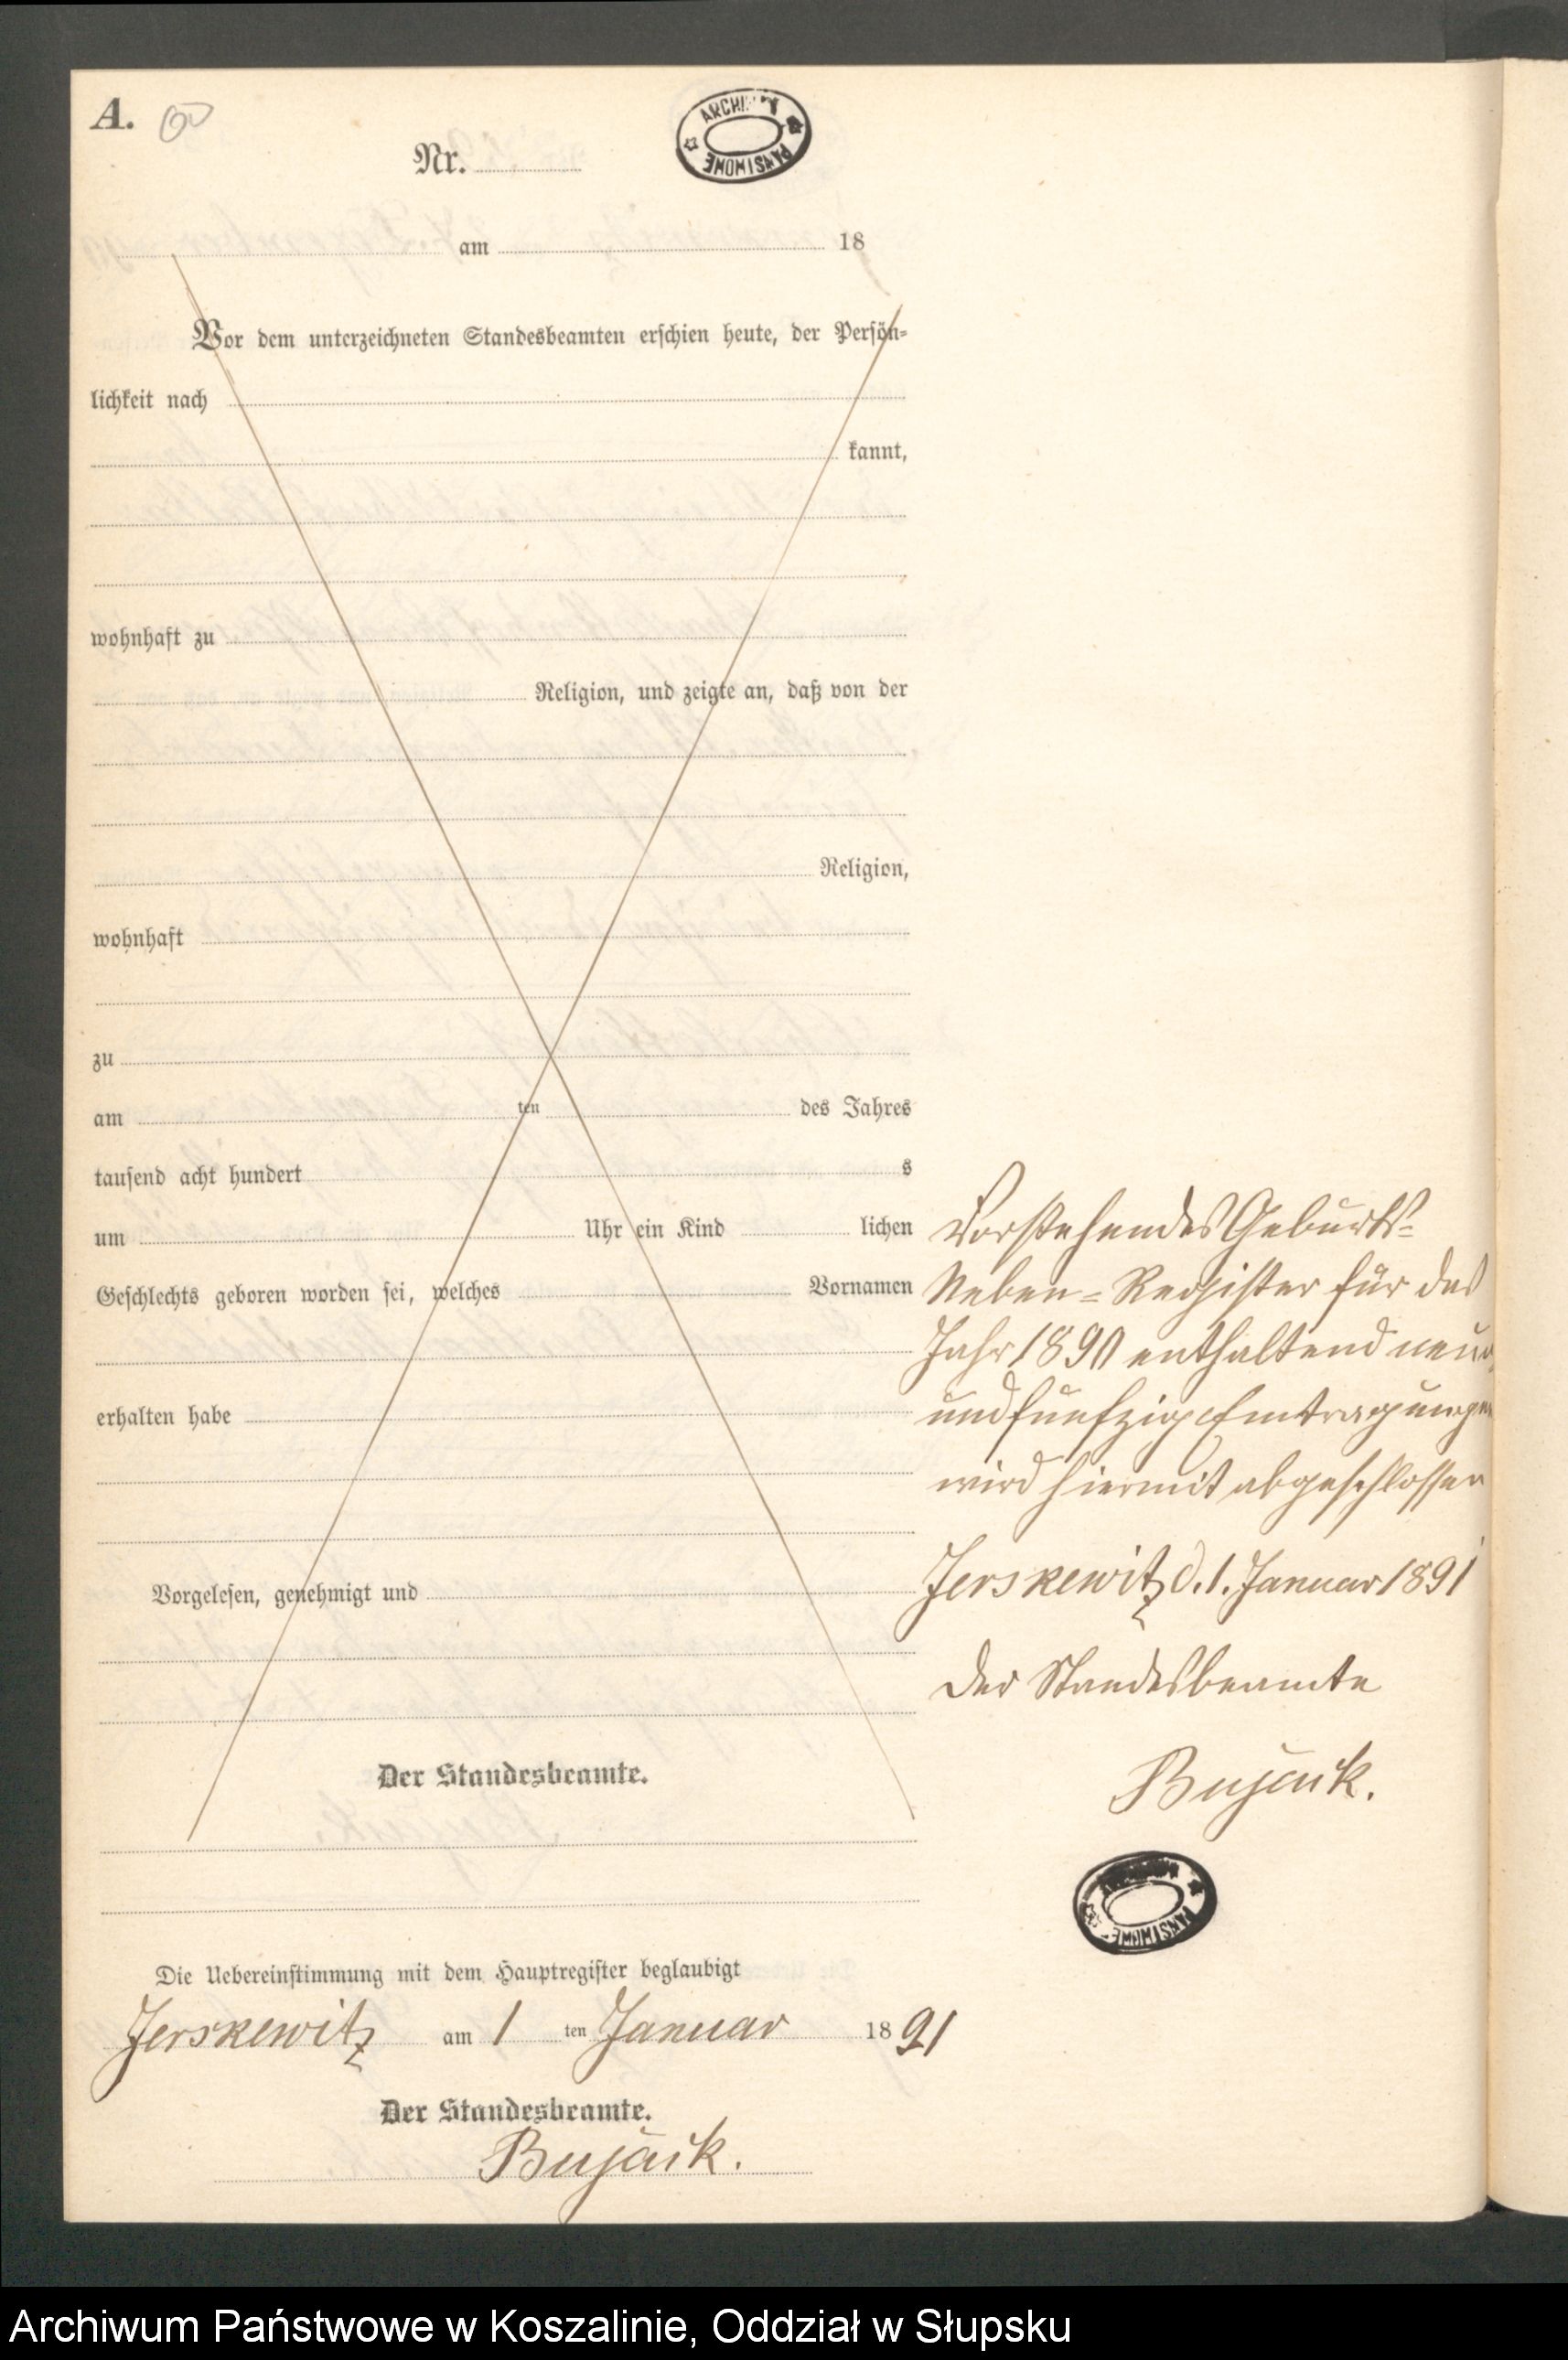 A. 60
ARCHIWUM PAŃSTWOWE
Nr.
am 18
Vor dem unterzeichneten Standesbeamten erschien heute, der Persön-
lichkeit nach
kannt,
wohnhaft zu
Religion, und zeigte an, daß von der
Religion,
wohnhaft
zu
am ten des Jahres
tausend acht hundert s
um Uhr ein Kind lichen
Geschlechts geboren worden sei, welches Vornamen
erhalten habe
Vorgelesen, genehmigt und
Der Standesbeamte.
Die Uebereinstimmung mit dem Hauptregister beglaubigt
Jerskewitz am 1 ten Januar 1891
Der Standesbeamte.
Bujack.
Vorstehendes Geburts-
Neben-Register für das
Jahr 1890 enthaltend neun
und fünfzig Eintragungen
wird hiermit abgeschlossen
Jerskewitz d. 1. Januar 1891
Der Standesbeamte
Bujack.
Archiwum Państwowe w Koszalinie, Oddział w Słupsku